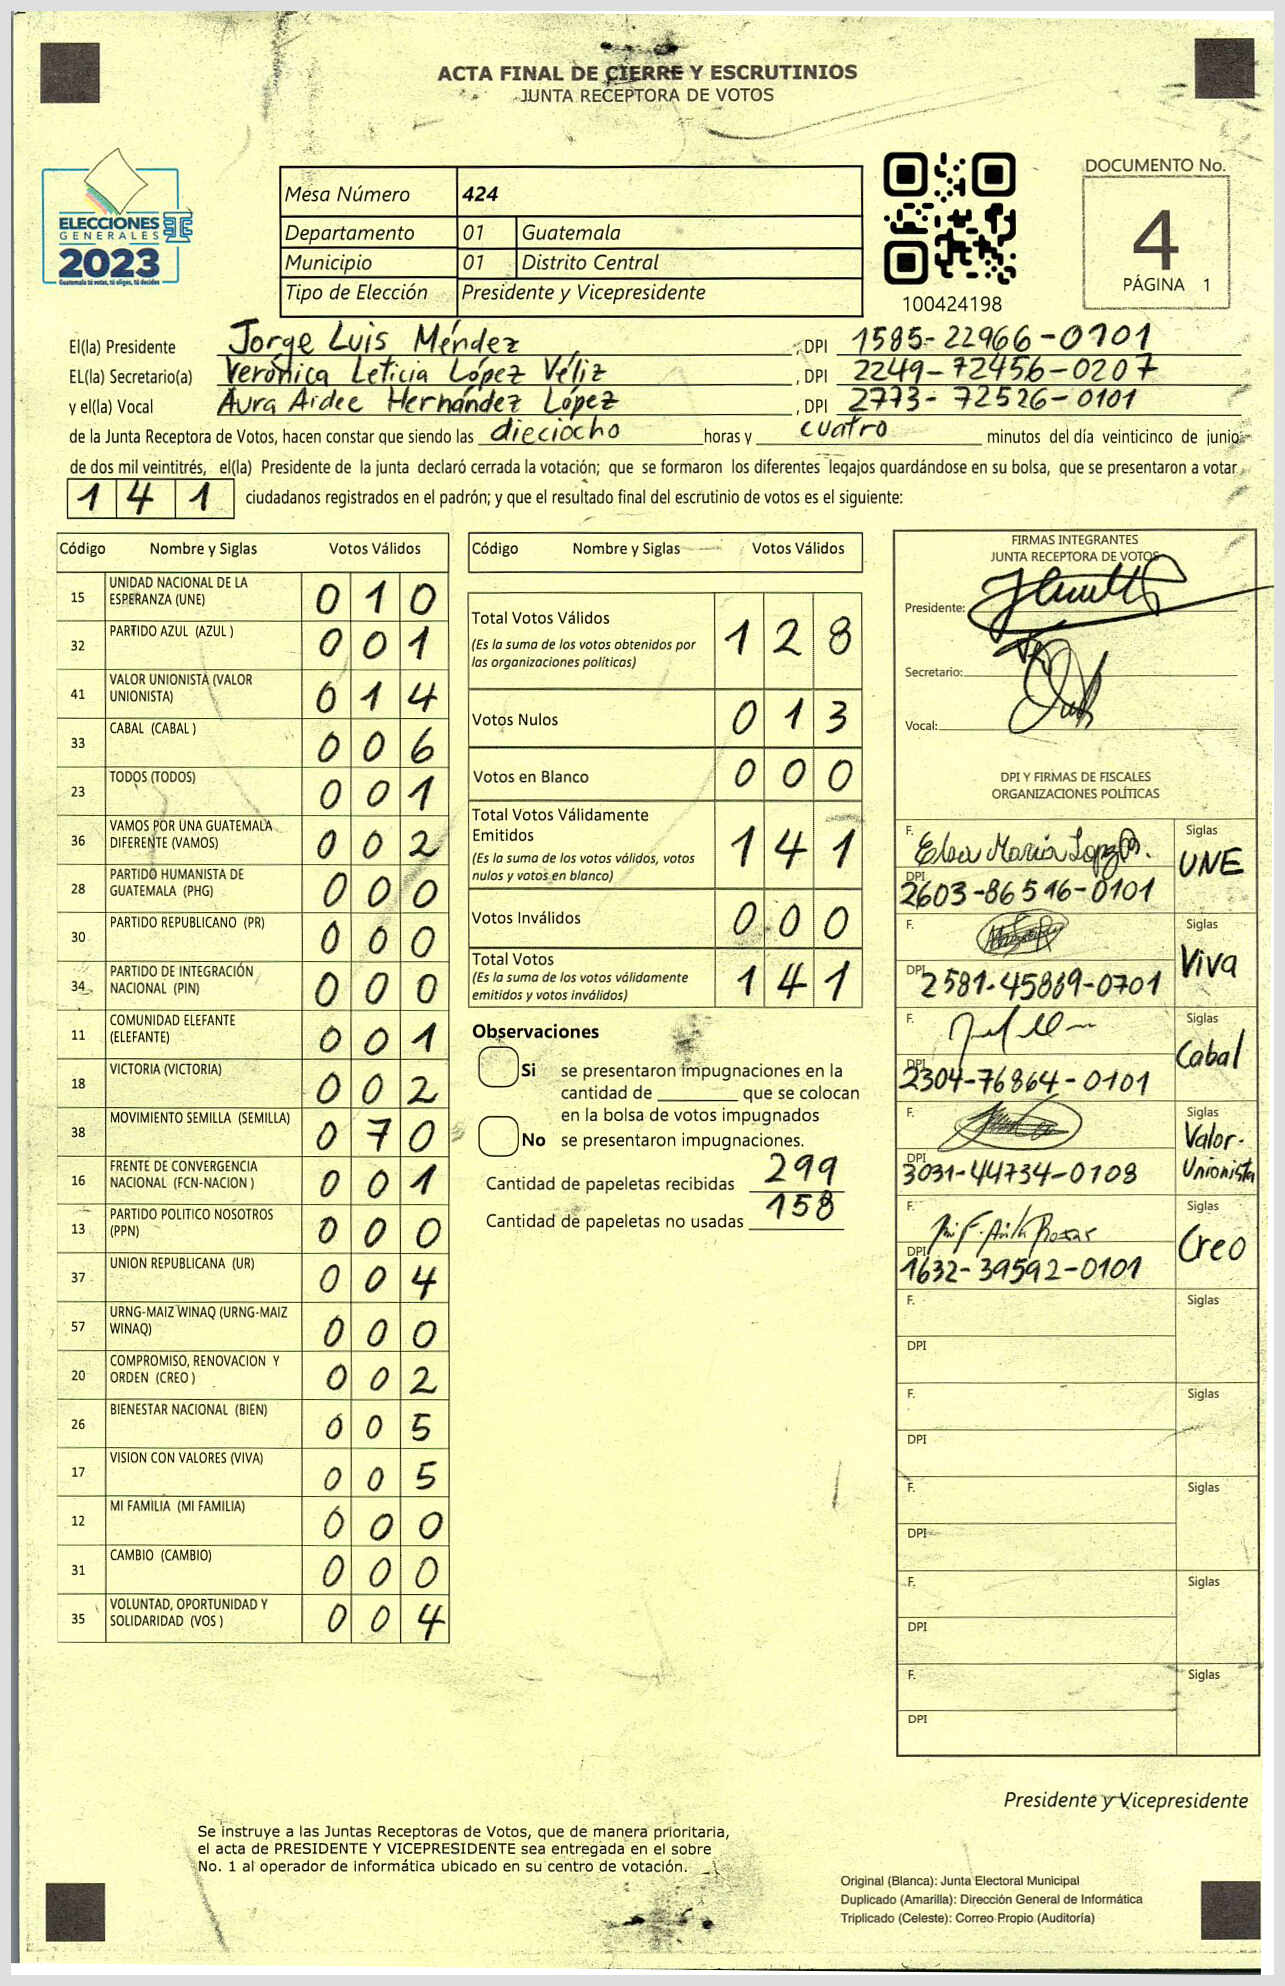 ACTA FINAL DE CIERRE Y ESCRUTINIOS
JUNTA RECEPTORA DE VOTOS
ELECCIONES
GENERALES
2023
Guatemala tú votas, tú eliges, tú decides
Mesa Número 424
Departamento 01 Guatemala
Municipio 01 Distrito Central
Tipo de Elección Presidente y Vicepresidente
100424198
DOCUMENTO No.
4
PÁGINA 1
El(la) Presidente Jorge Luis Méndez , DPI 1585-22966-0101
EL(la) Secretario(a) Verónica Leticia López Véliz , DPI 2249-72456-0207
y el(la) Vocal Aura Aidee Hernández López , DPI 2773-72526-0101
de la Junta Receptora de Votos, hacen constar que siendo las dieciocho horas y cuatro minutos del día veinticinco de junio
de dos mil veintitrés, el(la) Presidente de la junta declaró cerrada la votación; que se formaron los diferentes legajos quardándose en su bolsa, que se presentaron a votar
1 4 1 ciudadanos registrados en el padrón; y que el resultado final del escrutinio de votos es el siguiente:
Código Nombre y Siglas Votos Válidos
15 UNIDAD NACIONAL DE LA ESPERANZA (UNE) 0 1 0
32 PARTIDO AZUL (AZUL ) 0 0 1
41 VALOR UNIONISTA (VALOR UNIONISTA) 0 1 4
33 CABAL (CABAL ) 0 0 6
23 TODOS (TODOS) 0 0 1
36 VAMOS POR UNA GUATEMALA DIFERENTE (VAMOS) 0 0 2
28 PARTIDO HUMANISTA DE GUATEMALA (PHG) 0 0 0
30 PARTIDO REPUBLICANO (PR) 0 0 0
34 PARTIDO DE INTEGRACIÓN NACIONAL (PIN) 0 0 0
11 COMUNIDAD ELEFANTE (ELEFANTE) 0 0 1
18 VICTORIA (VICTORIA) 0 0 2
38 MOVIMIENTO SEMILLA (SEMILLA) 0 7 0
16 FRENTE DE CONVERGENCIA NACIONAL (FCN-NACION ) 0 0 1
13 PARTIDO POLITICO NOSOTROS (PPN) 0 0 0
37 UNION REPUBLICANA (UR) 0 0 4
57 URNG-MAIZ WINAQ (URNG-MAIZ WINAQ) 0 0 0
20 COMPROMISO, RENOVACION Y ORDEN (CREO ) 0 0 2
26 BIENESTAR NACIONAL (BIEN) 0 0 5
17 VISION CON VALORES (VIVA) 0 0 5
12 MI FAMILIA (MI FAMILIA) 0 0 0
31 CAMBIO (CAMBIO) 0 0 0
35 VOLUNTAD, OPORTUNIDAD Y SOLIDARIDAD (VOS ) 0 0 4
Código Nombre y Siglas Votos Válidos
Total Votos Válidos 1 2 8
(Es la suma de los votos obtenidos por
las organizaciones políticas)
Votos Nulos 0 1 3
Votos en Blanco 0 0 0
Total Votos Válidamente
Emitidos 1 4 1
(Es la suma de los votos válidos, votos
nulos y votos en blanco)
Votos Inválidos 0 0 0
Total Votos 1 4 1
(Es la suma de los votos válidamente
emitidos y votos inválidos)
Observaciones
Si se presentaron impugnaciones en la
cantidad de ________ que se colocan
en la bolsa de votos impugnados
No se presentaron impugnaciones.
Cantidad de papeletas recibidas 299
Cantidad de papeletas no usadas 158
FIRMAS INTEGRANTES
JUNTA RECEPTORA DE VOTOS
Presidente:
Secretario:
Vocal:
DPI Y FIRMAS DE FISCALES
ORGANIZACIONES POLÍTICAS
F. Siglas
UNE
DPI 2603-86516-0101
F. Siglas
Viva
DPI 2581-45889-0701
F. Siglas
Cabal
DPI 2304-76864-0101
F. Siglas
Valor-
Unionista
DPI 3031-44734-0108
F. Siglas
Creo
DPI 1632-39592-0101
F. Siglas
DPI
F. Siglas
DPI
F. Siglas
DPI
F. Siglas
DPI
F. Siglas
DPI
Presidente y Vicepresidente
Se instruye a las Juntas Receptoras de Votos, que de manera prioritaria,
el acta de PRESIDENTE Y VICEPRESIDENTE sea entregada en el sobre
No. 1 al operador de informática ubicado en su centro de votación.
Original (Blanca): Junta Electoral Municipal
Duplicado (Amarilla): Dirección General de Informática
Triplicado (Celeste): Correo Propio (Auditoría)